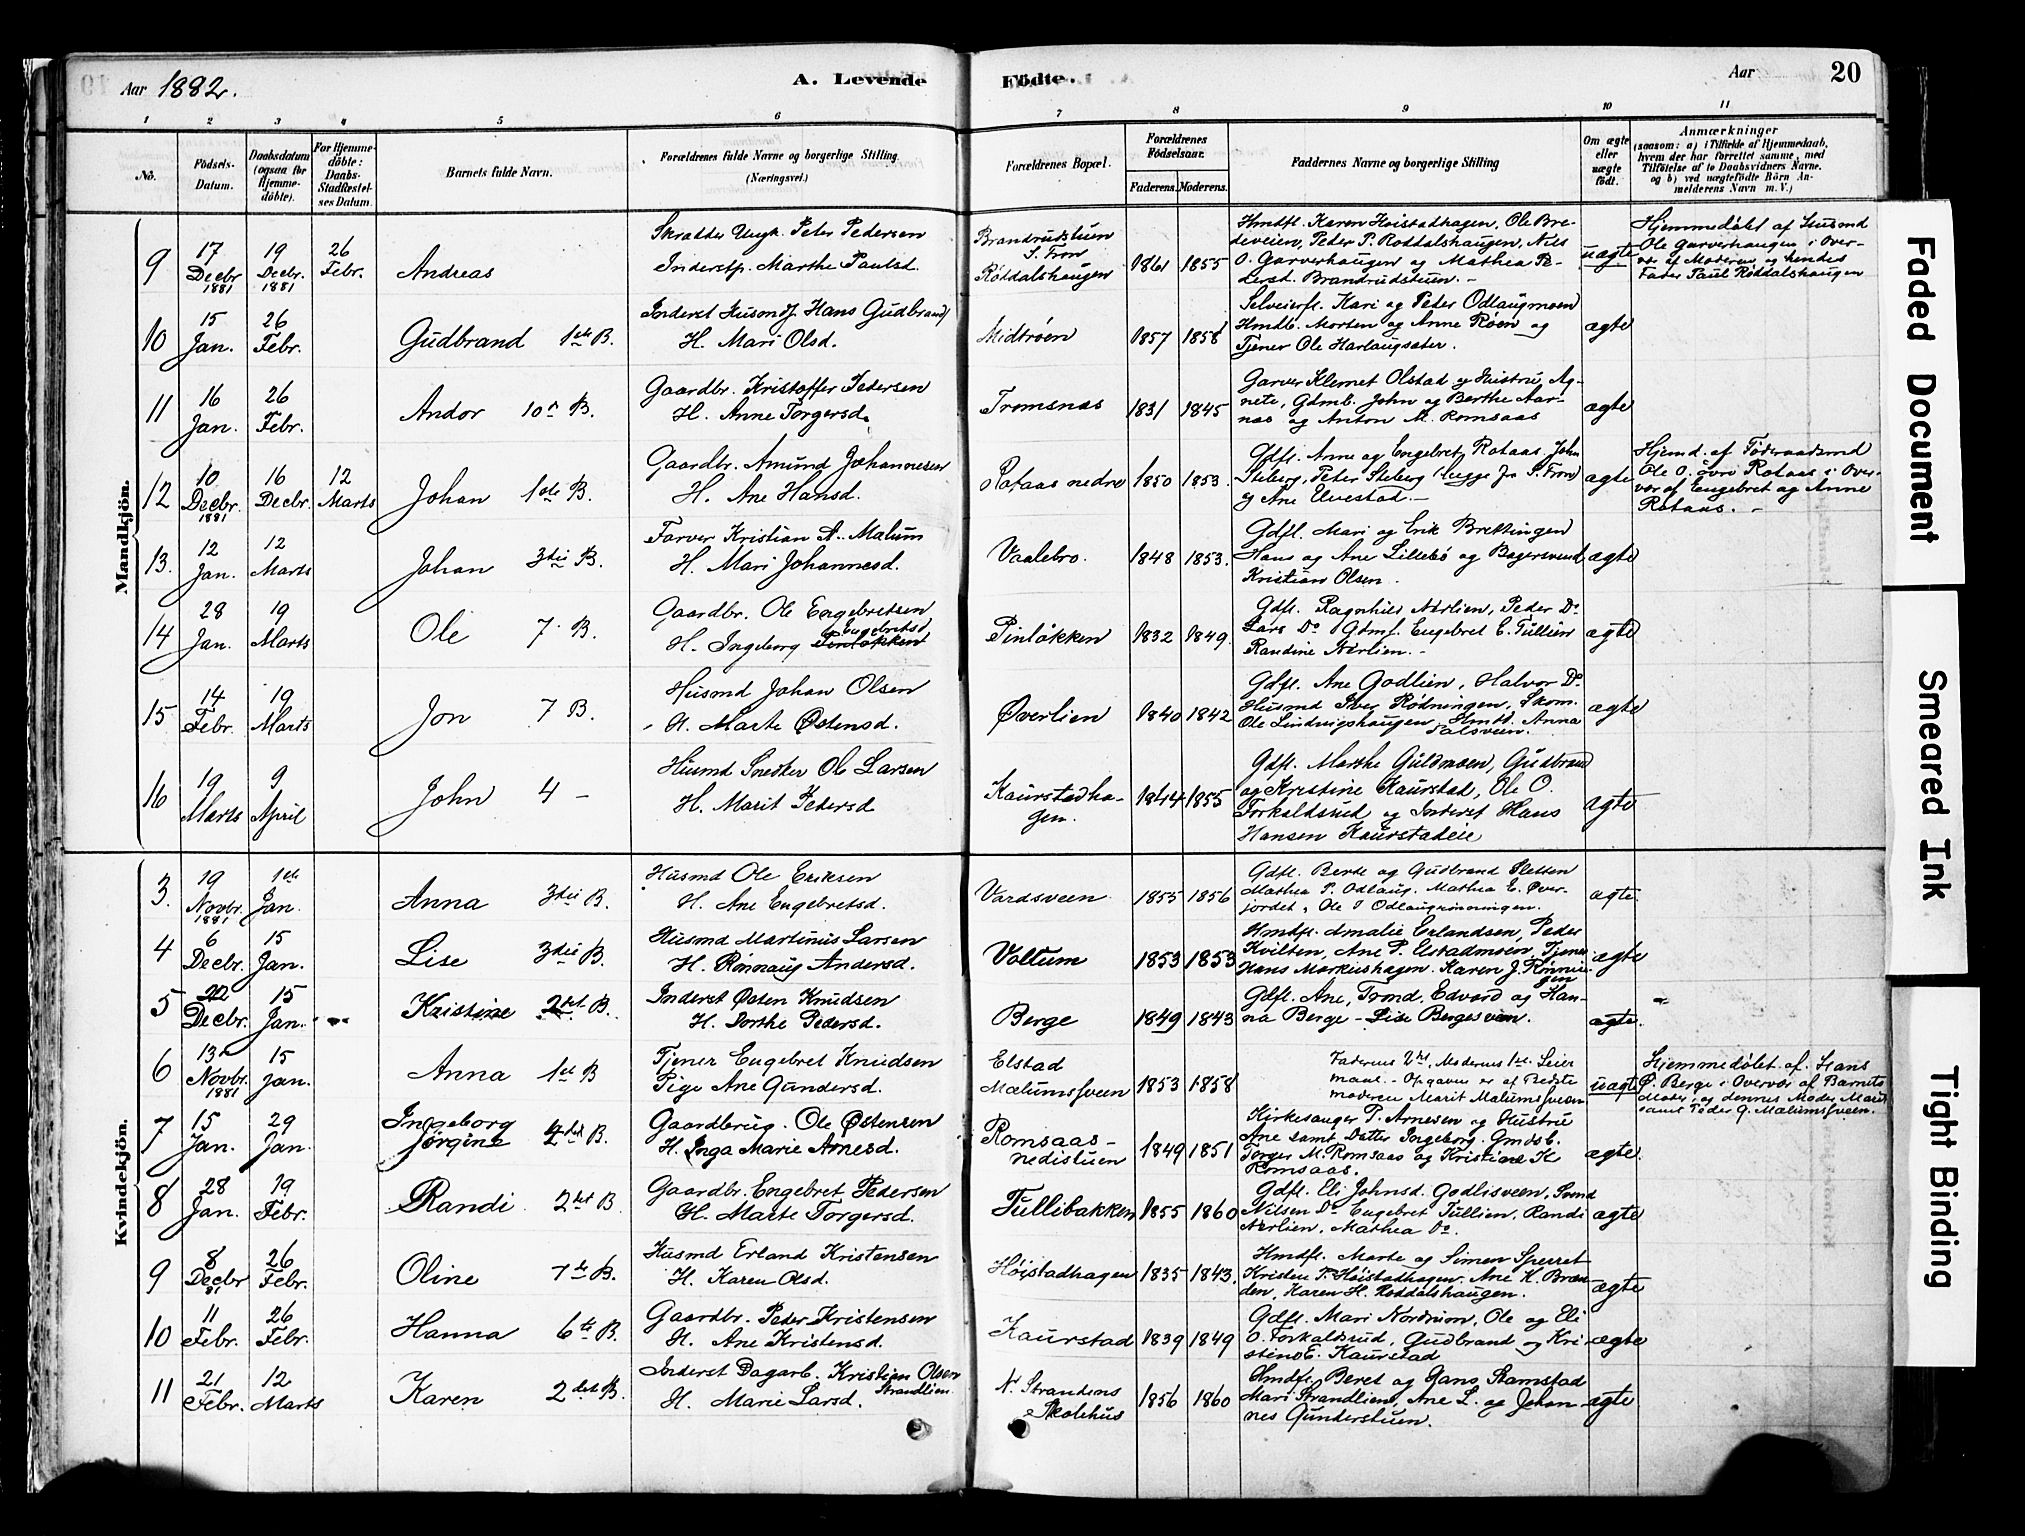 Aar 1882.
A. Levende
Födte.
Aar
20
1 2 3 4 5 6 7 8 9 10 11
No.
Födsels-Datum.
Daabsdatum (ogsaa for Hjemme-döbte).
For Hjemme-döbte: Daabs-Stadfæstel-ses Datum.
Barnets fulde Navn.
Forældrenes fulde Navne og borgerlige Stilling (Næringsvei.)
Forældrenes Bopæl.
Forældrenes Födselsaar.
Faderens. Moderens.
Faddernes Navne og borgerlige Stilling
Om ægte eller uægte födt.
Anmærkninger
(saasom: a) i Tilfælde af Hjemmedaab, hvem der har forrettet samme, med Tilföielse af to Daabsvidners Navne. og b) ved uægtefödte Börn An-melderens Navn m. V.)
Mandkjön.
9
17 Decbr 1881
19 Decbr. 1881
26 Febr.
Andreas
Skrædder Ungk. Peter Pedersen
Inderstp. Marthe Paulsd.
Brandrudstuen
S. Fron
Röddalshaugen
1861 1855
Hmdfl. Karen Høistadhagen, Ole Bre-
deveien, Peder P. Roddalshaugen, Nils
O. Garverhaugen og Mathea Pe-
derst. Brandrudstuen. -
uægte
Hjemmedøbt af Husmd
Ole Garverhaugen i Over-
vær af Moderen og hendes
Fader Paul Røddalshaugen
10
15 Jan.
26 Febr.
Gudbrand 1ste B.
Inderst Husmd Hans Gudbrand
H. Mari Olsd.
Midtrøen
1857 1858
Selveierfl. Kari og Peter Odlaugmoen
Hmdb. Morten og Anne Røen og
Tjener Ole Harlaugsæter.
ægte
11
16 Jan.
26 Febr.
Andor 10de B.
Gaardbr. Kristoffer Pedersen
H. Anne Torgersd.
Tromsnæs
1831 1845
Garver Klemet Olstad og Hustru Ag-
nete, Gdmb. John og Berthe Aar-
næs og Anton M. Romsaas
ægte
12
10 Decbr. 1881
16 Decbr.
12 Marts
Johan 1ste B.
Gaardbr. Amund Johannesen
H. Ane Hansd.
Rotaas nedre
1850 1853.
Gdfl. Anne og Engebret Rotaas, John
Steberg, Peter Steberg (begge fra S. Fron)
og Ane Elvestad. -
ægte
Hjemd. af Føderaadsmd
Ole O. Øvre Rotaas i Over-
vær af Engebret og Anne
Rotaas. -
13.
12 Jan.
12 Marts
Johan 3die B.
Farver Kristian A. Malum
H. Mari Johannesd.
Vaalebro.
1848 1853.
Gdfl. Mari og Erik Brettingen
Hans og Ane Lillebø og Bagersvend
Kristian Olsen.
ægte
14
28 Jan.
19 Marts
Ole 7. B.
Gaardbr. Ole Engebretsen
H. Ingeborg Engebretsd
Pinløkken
1832 1849.
Gdfl. Ragnhild Nerlien, Peder Do
Lars Do Gdmf. Engebret E. Tullien
Randine Nerlien. -
ægte
15
14 Febr.
19 Marts
Jon 7 B.
Husmd Johan Olsen
H. Marte Østensd.
Øverlien
1840 1842
Gdfl. Ane Godlien, Halvor Do
Husmd Iver Rødningen, Skom.
Ole Lindvigshaugen, Hmdd. Anna
Palsveen.
ægte
16
19 Marts
9 April
John 4 -
Husmd Snedker Ole Larsen
H. Marit Pedersd
Kaurstadha-
gen.
1844 1855
Gdfl. Marthe Guldmoen, Gudbrand
og Kristine Kaurstad, Ole O.
Forkaldsrud og Inderst Hans
Hansen Kaurstadeie
ægte
Kvindekjön.
3.
19 Novbr. 1881
1ste Jan.
Anna 3die B.
Husmd Ole Eriksen
H. Ane Engebretsd.
Vardsveen
1855 1856
Gdfl. Berte og Gudbrand Sletten
Mathea P. Odlaug. Mathea E. Øver-
jordet, Ole T Odlaugrønningen.
ægte.
4
6 Decbr.
15 Jan.
Lise 3die B.
Husmd Martinus Larsen
H. Rønnaug Andersd.
Voltum
1853 1853
Hmdfl. Amalie Erlandsen, Peder
Kvilten, Ane P. Elstadmoen, Tjener
Hans Markushagen. Karen J. Rønnin-
gen
ægte
5
22 Decbr.
15 Jan.
Kristine 2det B.
Inderst Østen Knudsen
H. Dorthe Pedersd.
Berge
1849 1843
Gdfl. Ane, Trond, Edvard og Han-
na Berge - Lise Bergesveen.
ægte.
6
13de Novbr. 1881
15 Jan.
Anna 1ste B
Tjener Engebret Knudsen
Pige Ane Gundersd.
Elstad
Mælumsveen
1853 1858
Faderens 1ste, Moderens 1ste Leier
maal. - Opgaven er af Bedste
moderen Marit Mælumsveen
uægte
Hjemmedøbt af Hans
P. Berge i Overvær af Barnets
Moder, og dennes Moder Marit
samt Peder G. Mælumsveen.
7
15 Jan.
29 Jan.
Ingeborg
Jørgine 4det B.
Gaardbrug. Ole Østensen
H. Inga Marie Arnesd.
Romsaas-
nedistuen
1849 1851
Kirkesanger P. Arnesen og Hustru
Ane samt Datter Ingeborg. Gmdsb.
Torger M. Romsaas og Kristiane H.
Romsaas.
ægte.
8
28 Jan.
19 Febr.
Randi 2det B
Gaardbr. Engebret Pedersen
H. Marte Torgersd.
Tullibakken
1855 1860
Gdfl. Eli Johnsd. Godlisveen, Svend
Nilsen Do Engebret Tullien, Randi
Nerlien, Mathea Do.
ægte
9
8 Decbr 81
26 Febr.
Oline 7de B.
Husmd Erland Kristensen
H. Karen Olsd.
Høistadhagen
1835 1843.
Hmdfl. Marte og Simen Sperret
Kristen P. Høistadhagen. Ane K. Bræn-
den, Karen H. Roddalshaugen.
ægte
10
11 Febr.
26 Febr.
Hanna 6te B.
Gaardbr. Peder Kristensen
H. Ane Kristensd.
Kaurstad
1839 1849
Gdfl. Mari Nordrum, Ole og Eli
O. Forkaldsrud, Gudbrand og Kri-
stine E. Kaurstad
ægte
11
21 Febr.
12 Marts
Karen 2det B.
Inderst Dagarb. Kristian Olsen
Strandlien.
H. Marie Larsd.
N. Strandens
Skolehus
1856 1860
Hmdfl. Beret og Hans Stamstad
Mari Strandlien, Ane L. og Johan-
nes Gunderstuen.
ægte
Faded Document
Smeared Ink
Tight Binding